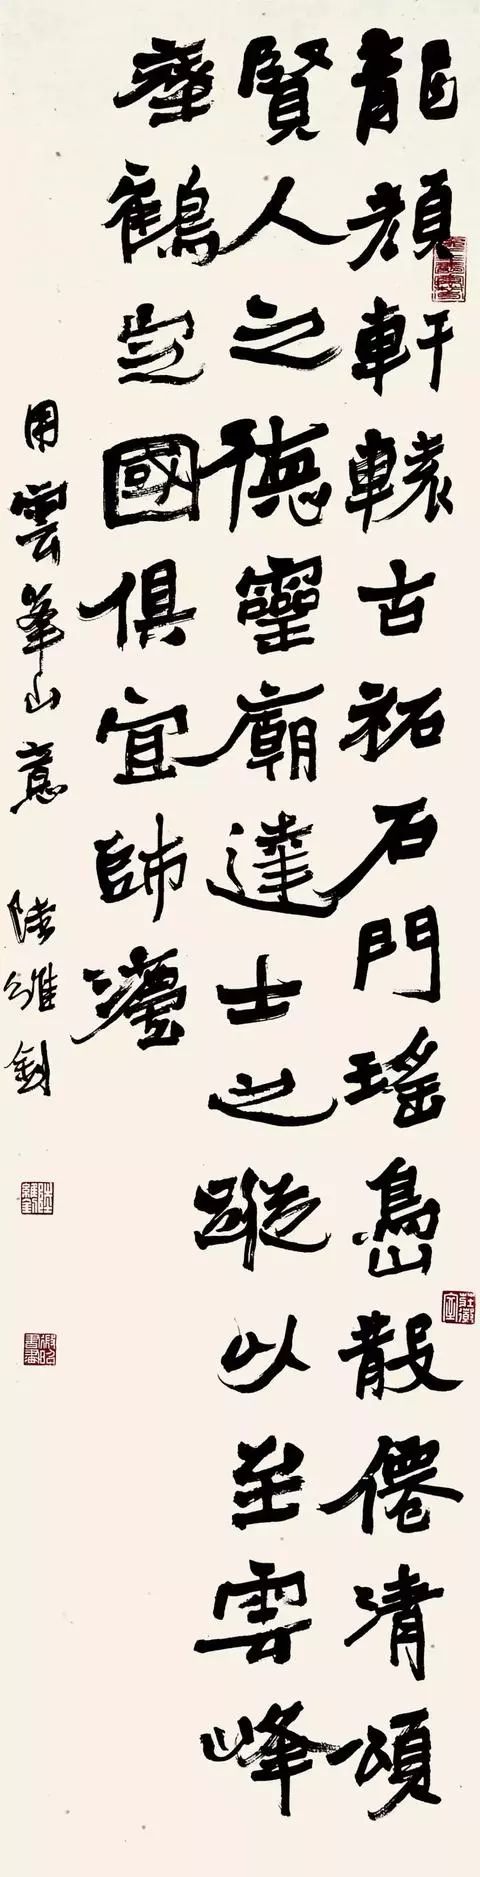 龍顏軒轅古祏石門瑤島散僊清頌
賢人之德靈廟達士之蹤以至雲峰
瘞鶴定國俱宜師灋
用雲峯山意 陸維釗
陸維釗